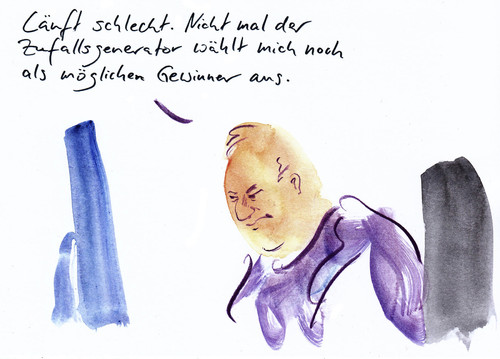 Läuft schlecht. Nicht mal der
Zufallsgenerator wählt mich noch
als möglichen Gewinner aus.